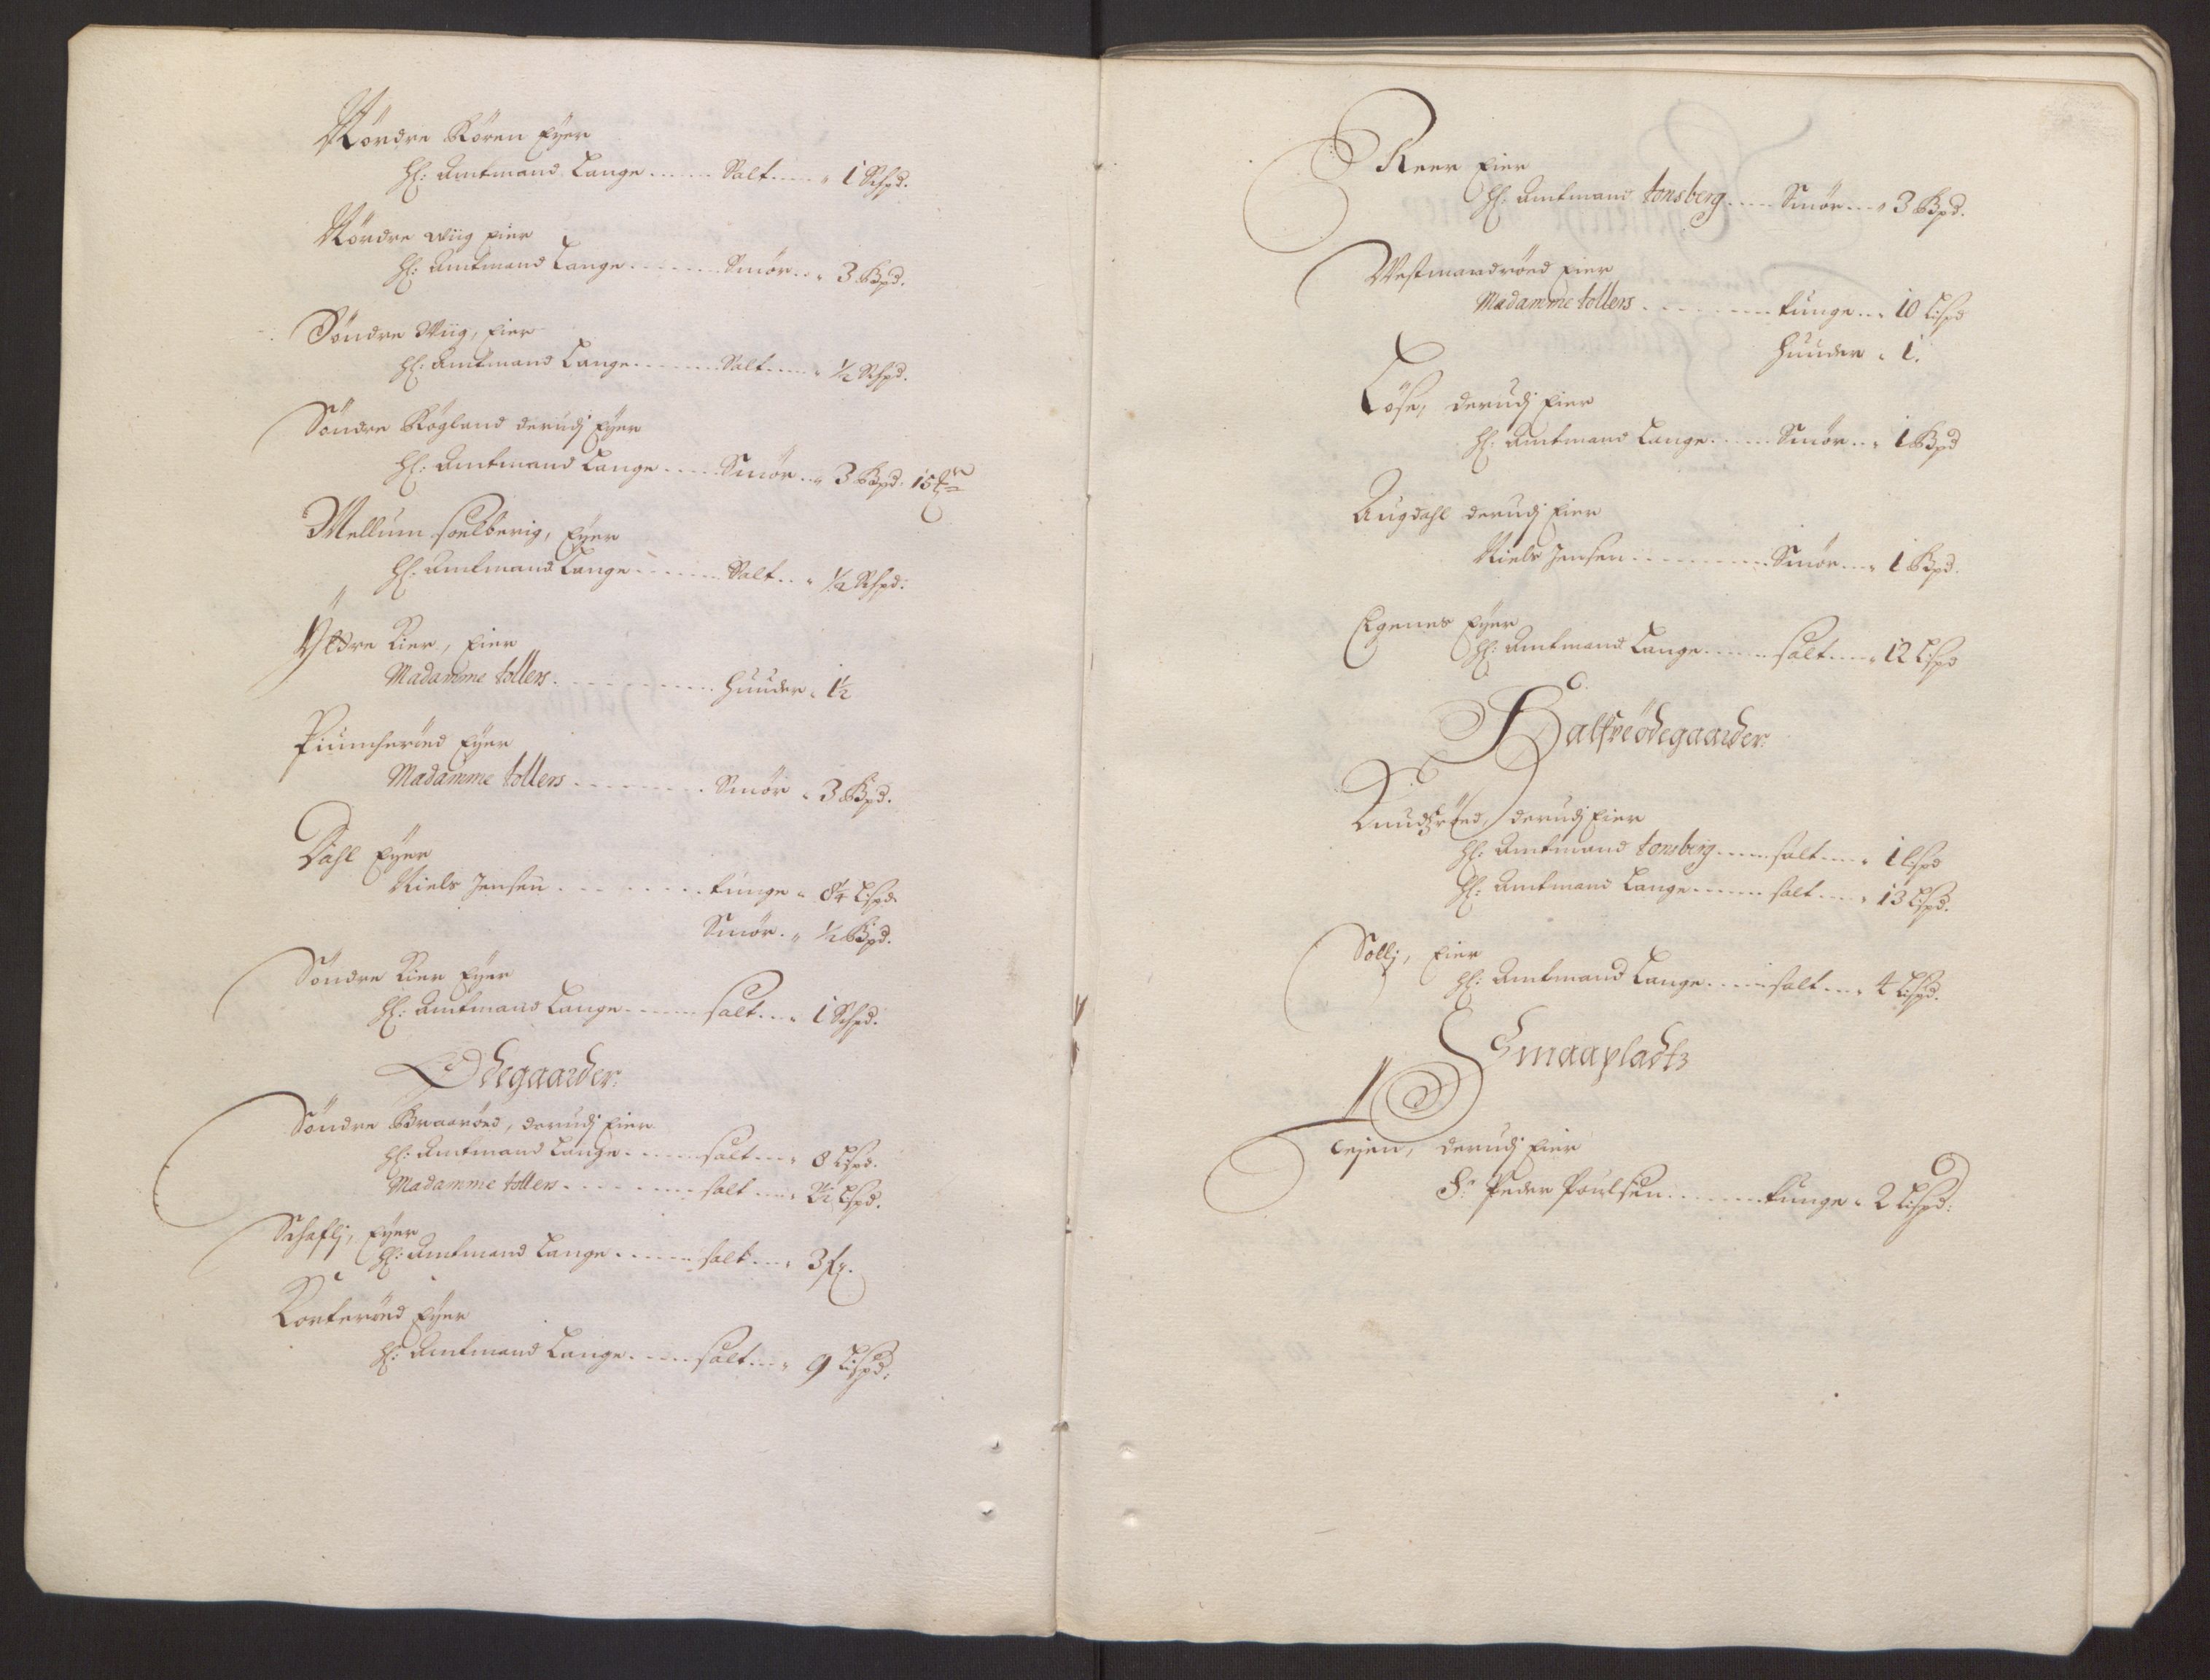 Nordre Røren Eyer
H: Amtmand Lange ...... Salt ..... 1 Schpd.
Nordre Wiig Eier
H: Amtmand Lange ....... Smør ... 3 Bpd.
Søndre Wiig, Eier
H: Amtmand Lange ....... Salt ..... ½ Schpd.
Søndre Røgland derudj Eyer
H: Amtmand Lange .... Smør ... 3 Bpd. 15
Mellum Soelberig, Eyer
H: Amtmand Lange ....... Salt ... ½ Schpd:
Yttre Kier, Eier
Madamme tollers .......... Huuder . 1½
Eyer
Madamme tollers ........ Smør . 3 Bpd.
Dahl Eyer
Niels Jensen ........ tunge . 8¼ Lispd.
Smør . ½ Bpd.
Søndre Kier Eyer
H: Amtmand Lange ...... salt ... 1 Schpd.
Ødegaarder.
Søndre Braarøed, derudj Eier
H: Amtmand Lange ...... salt .... 8 Lispd.
Madamme tollers ........ salt .... 2½ Lispd.
Schaflj, Eyer
H: Amtmand Lange ...... salt .... 3
Korterøed Eyer
H: Amtmand Lange ..... salt .... 9 Lispd:
Reer Eier
H: Amtmand tonsberg .... Smør ... 3 Bpd.
Westmandrøed Eier
Madamme tollers ........ tunge ... 10 Lispd
Huuder . 1.
Løse, derudj Eier
H: Amtmand Lange ..... Smør ... 1 Bpd
Augdahl derudj Eier
Niels Jensen ......... Smør .... 1 Bpd.
Egenes Eyer
H: Amtmand Lange ...... salt .... 12 Lispd
Halfveødegaarder.
Knudsrøed, derudj Eier
H: Amtmand tonsberg ..... salt .... 1 Lispd
H: Amtmand Lange ...... salt .... 13 Lispd.
Sollj, Eier
H: Amtmand Lange ..... salt .... 4 Lispd.
Smaapladtz
Tejen, derudj Eier
Sr. Peder Poulsen ....... tunge . 2 Lispd: